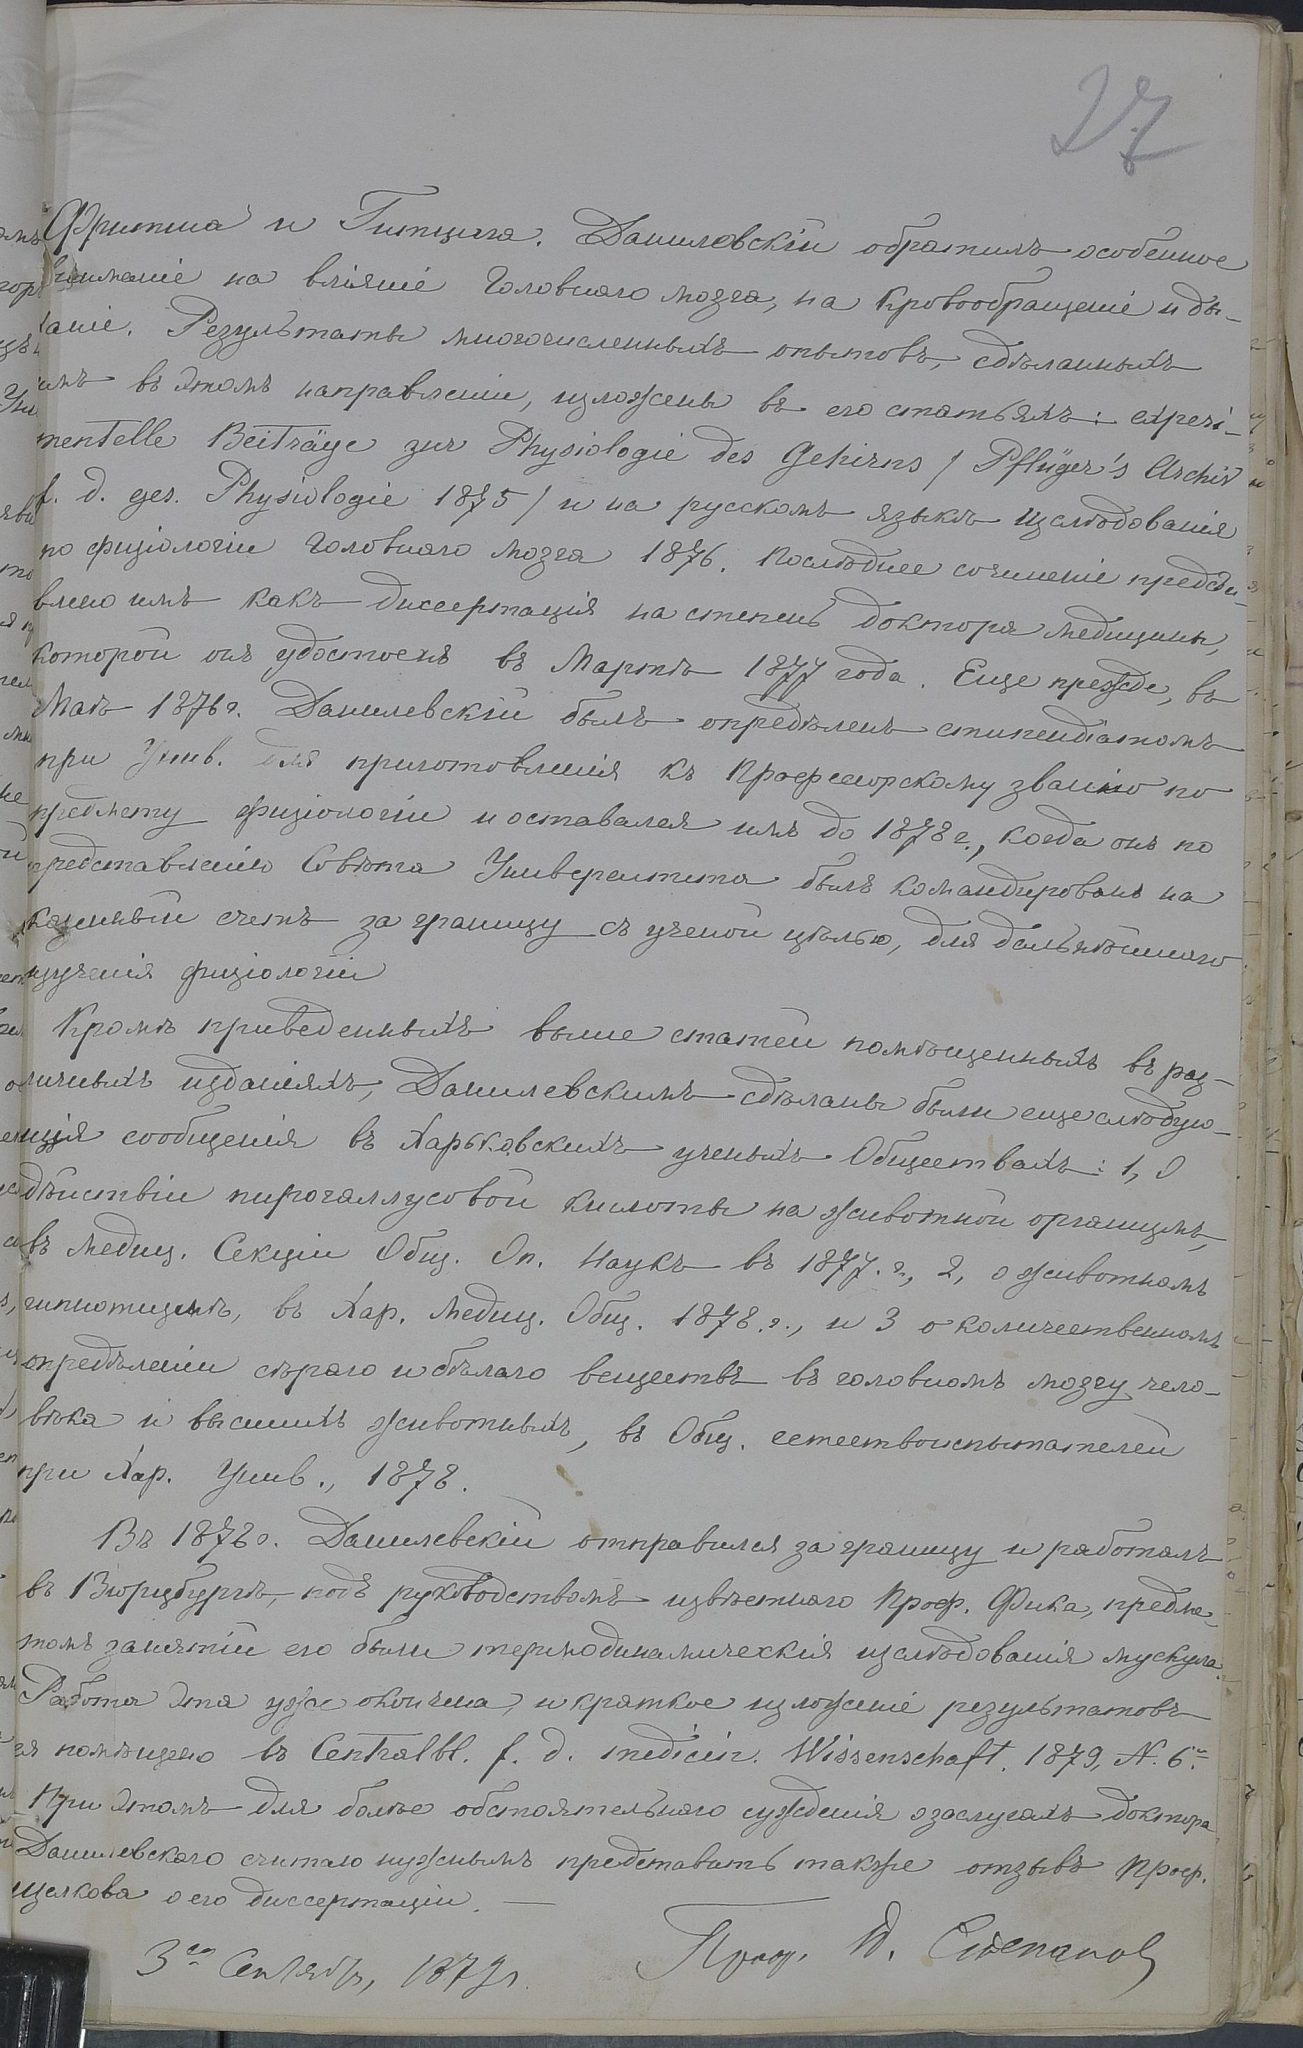 27
Фритша и Гитцига. Данилевскій обратилъ особенное
вниманіе на вліяніе головнаго мозга, на кровообращеніе и ды-
ханіе. Результаты многочисленныхъ опытовъ, сдѣланныхъ
имъ въ этомъ направленіи, изложены въ его статьяхъ: experi-
mentelle Beiträge zur Physiologie des Gehirns / Pflüger's Archiv
f. d. ges. Physiologie 1875 / и на русскомъ языкѣ Изслѣдованія
по физіологіи головнаго мозга 1876. Послѣднее сочиненіе предста-
влено имъ какъ диссертація на степень доктора медицины,
которой онъ удостоенъ въ Мартѣ 1877 года. Еще прежде, въ
Маѣ 1876 г. Данилевскій былъ опредѣленъ стипендіатомъ
при Унив. для приготовленія къ Профессорскому званію по
предмету физіологіи и оставался имъ до 1878 г., когда онъ по
представленію Совѣта Университета былъ командированъ на
казенный счетъ за границу съ ученой цѣлью, для дальнѣйшаго
изученія физіологіи
Кромѣ приведенныхъ выше статей помѣщенныхъ въ раз-
личныхъ изданіяхъ, Данилевскимъ сдѣланы были еще слѣдую-
щія сообщенія въ Харьковскихъ ученыхъ Обществахъ: 1, О
дѣйствіи пирогаллусовой кислоты на животной организмъ,
въ Медиц. Секціи Общ. Оп. Наукъ въ 1877 г., 2, о животномъ
гипнотизмѣ, въ Хар. Медиц. Общ. 1878 г., и 3 о количественномъ
опредѣленіи сѣраго и бѣлаго веществъ въ головномъ мозгу чело-
вѣка и высшихъ животныхъ, въ Общ. естествоиспытателей
при Хар. Унив., 1878.
Въ 1878 г. Данилевскій отправился за границу и работалъ
въ Вюрцбургѣ, подъ руководствомъ извѣстнаго Проф. Фика, предме-
томъ занятій его были термодинамическія изслѣдованія мускула.
Работа эта уже окончена, и краткое изложеніе результатовъ
ея помѣщено въ Centralbl. f. d. medicin. Wissenschaft. 1879, N. 6.
При этомъ для болѣе обстоятельнаго сужденія о заслугахъ доктора
Данилевскаго считаю нужнымъ представить также отзывъ Проф.
Щелкова о его диссертаціи. —
3го Сентябр, 1879 г. Проф. П. Степановъ